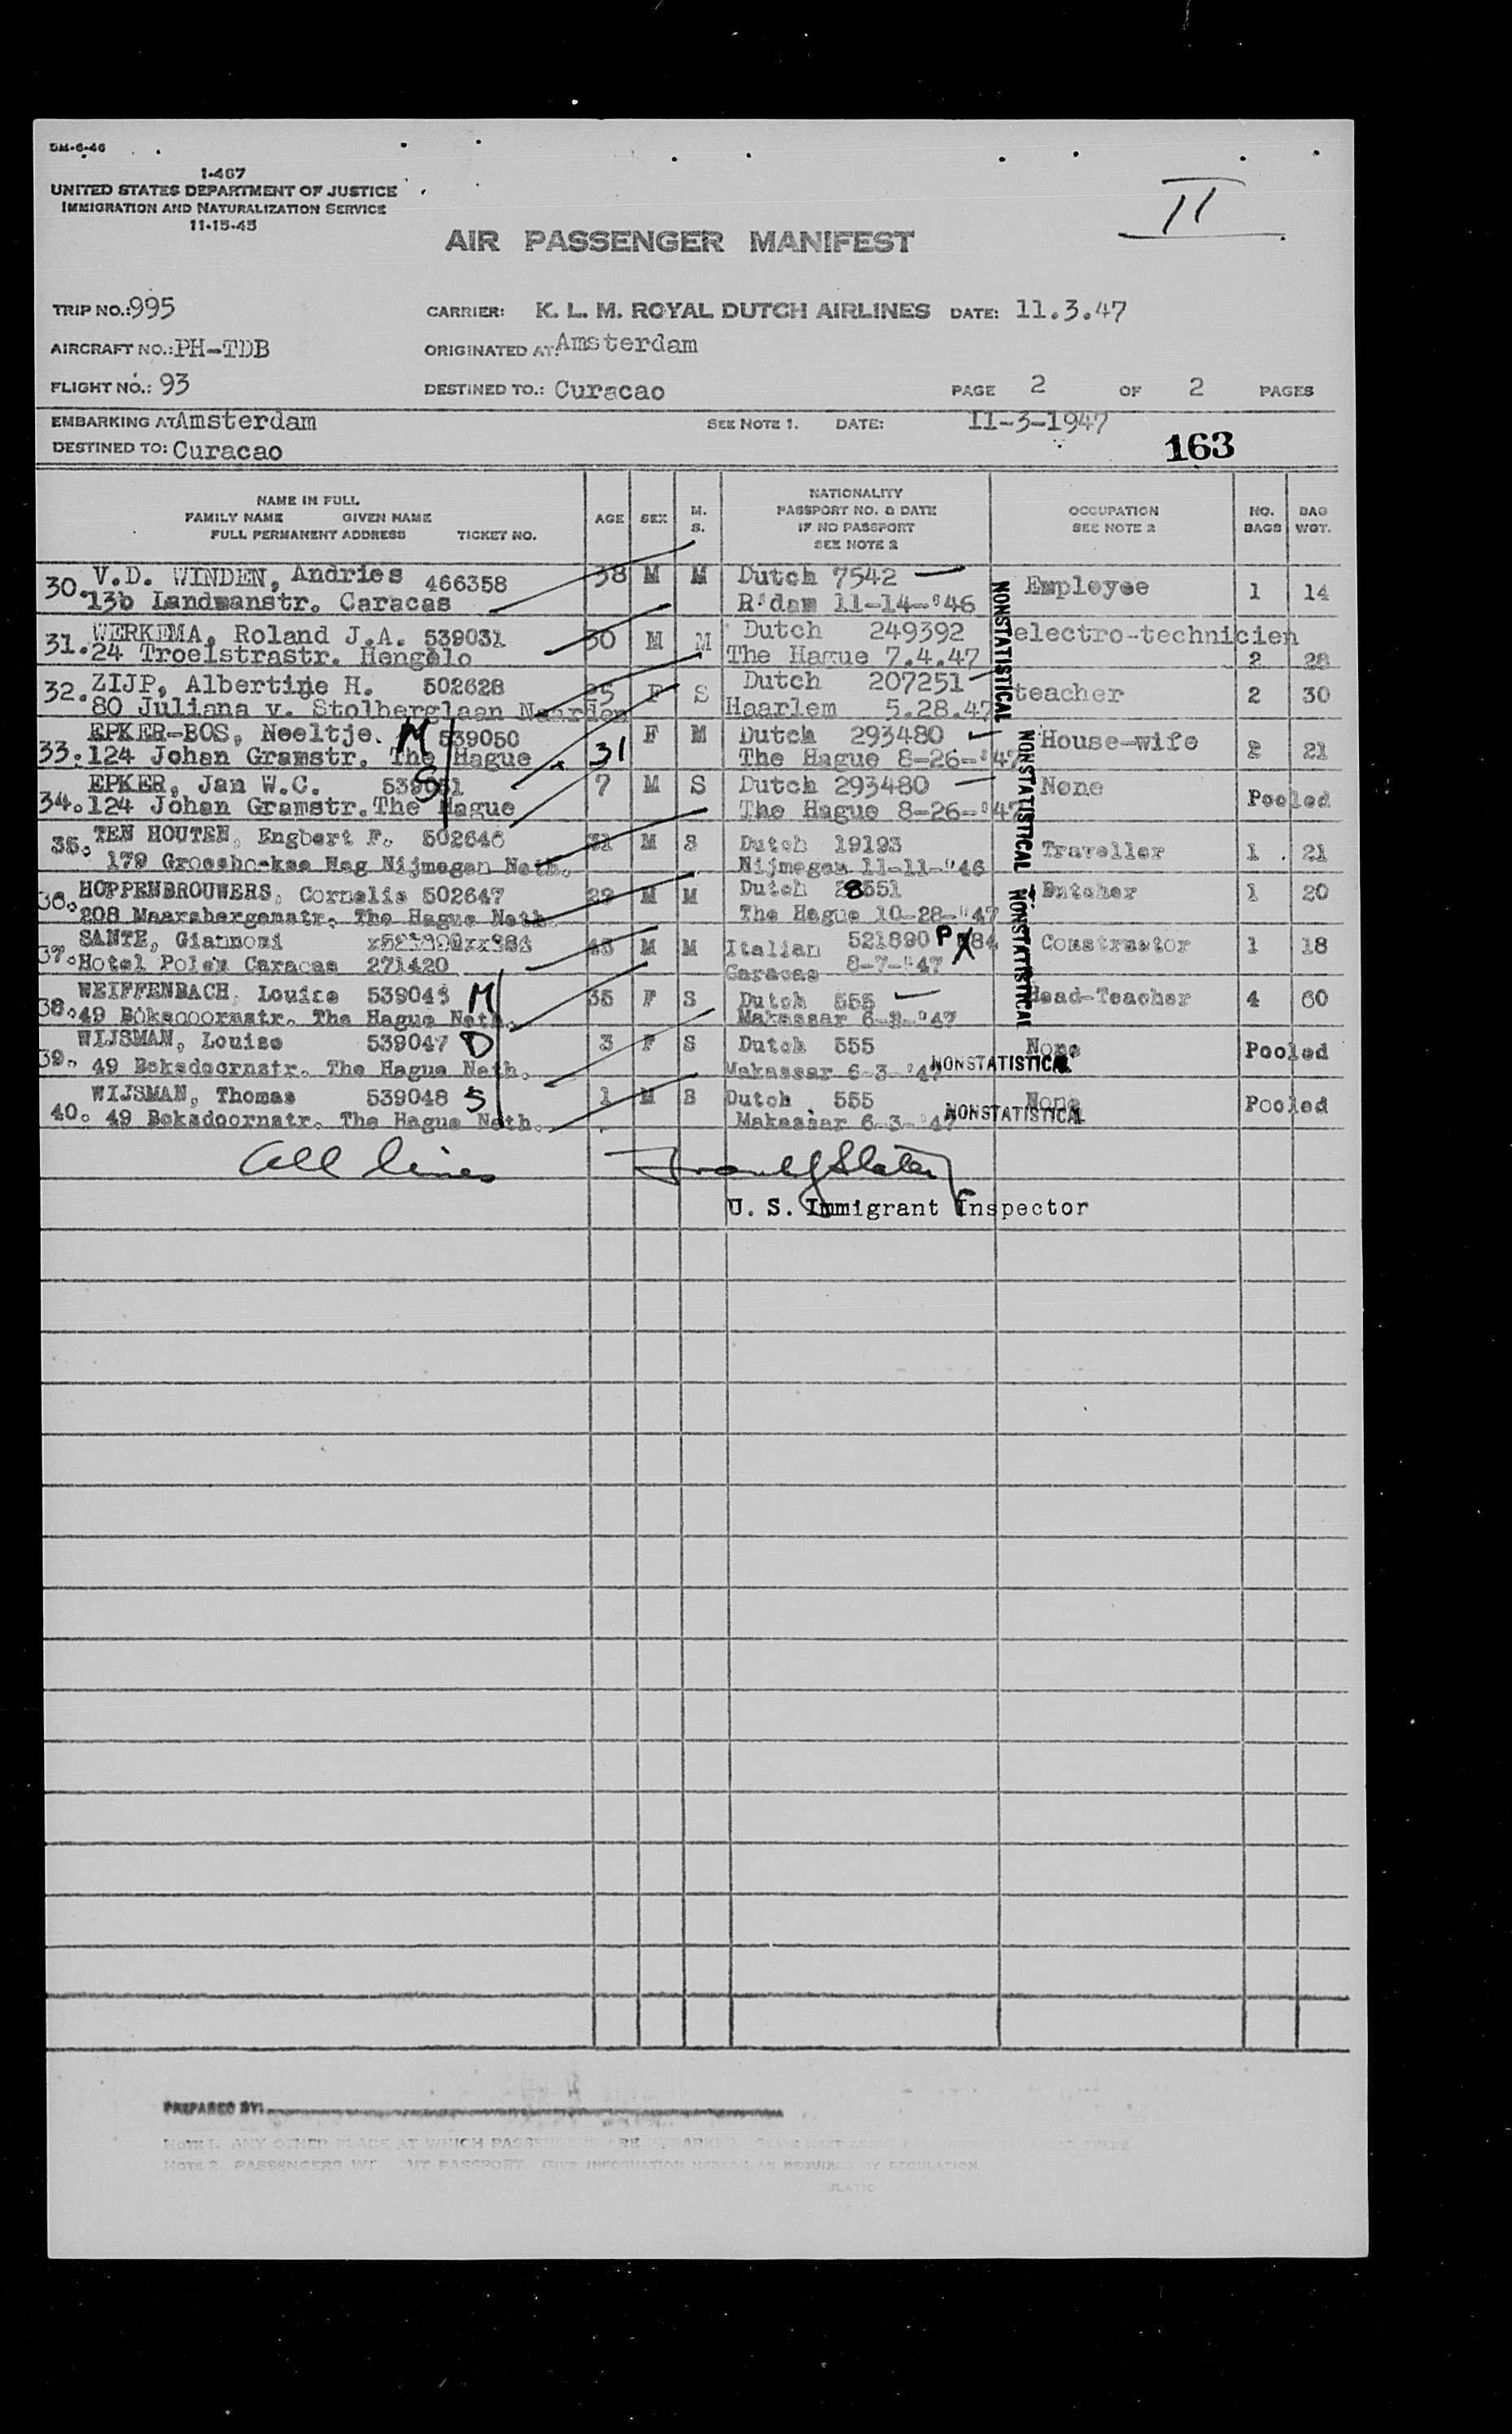 5M-6-46
1-467
UNITED STATES DEPARTMENT OF JUSTICE
IMMIGRATION AND NATURALIZATION SERVICE
11-15-45
II
AIR PASSENGER MANIFEST
TRIP NO.: 995 CARRIER: K. L. M. ROYAL DUTCH AIRLINES DATE: 11.3.47
AIRCRAFT NO.: PH-TDB ORIGINATED AT: Amsterdam
FLIGHT NO.: 93 DESTINED TO.: Curacao PAGE 2 OF 2 PAGES
EMBARKING AT Amsterdam SEE NOTE 1. DATE: 11-3-1947
DESTINED TO: Curacao 163
NAME IN FULL
FAMILY NAME GIVEN NAME
FULL PERMANENT ADDRESS TICKET NO.
AGE SEX M. S.
NATIONALITY
PASSPORT NO. & DATE
IF NO PASSPORT
SEE NOTE 2
OCCUPATION
SEE NOTE 2
NO. BAGS
BAG WGT.
30. V.D. WINDEN, Andries 466358 38 M M Dutch 7542 Employee 1 14
13b Landmanstr. Caracas R'dam 11-14-'46
31. WERKEMA, Roland J.A. 539031 30 M M Dutch 249392 electro-technicien
24 Troelstrastr. Hengelo The Hague 7.4.47 2 28
32. ZIJP, Albertine H. 502628 25 F S Dutch 207251 teacher 2 30
80 Juliana v. Stolberglaan Naarden Haarlem 5.28.47
EPKER-BOS, Neeltje. M 539050 F M Dutch 293480 House-wife 2 21
33. 124 Johan Gramstr. The Hague 31 The Hague 8-26-'47
EPKER, Jan W.C. 539051 S 7 M S Dutch 293480 None
34. 124 Johan Gramstr. The Hague The Hague 8-26-'47 Pooled
35. TEN HOUTEN, Engbert F. 502646 31 M S Dutch 19193 Traveller 1 21
179 Nijmegen Neth. Nijmegen 11-11-'46
36. HOPPENBROUWERS, Cornelis 502647 M M Dutch 28551 Butcher 1 20
208 Maarsbergenstr. The Hague Neth. The Hague 10-28-'47
SANTE, Giannoni 43 M M Italian 521890 P 84 Constructor 1 18
37. Hotel Polem Caracas 271420 Caracas 8-7-'47
WEIFFENBACH, Louise M 35 F S Dutch 555 Head-Teacher 4 60
38. 49 The Hague Neth. Makassar 6-3-'47
WIJSMAN, Louise 539047 D 3 F S Dutch 555 None Pooled
39. 49 Boksdoornstr. The Hague Neth. Makassar 6-3-'47 NONSTATISTICAL
WIJSMAN, Thomas 539048 S 1 M S Dutch 555 None Pooled
40. 49 Boksdoornstr. The Hague Neth. Makassar 6-3-'47 NONSTATISTICAL
NONSTATISTICAL
NONSTATISTICAL
NONSTATISTICAL
All lines Slater
U. S. Immigrant Inspector
PREPARED BY:
NOTE 1. ANY OTHER PLACE AT WHICH PASSENGERS ARE
NOTE 2. PASSENGERS PASSPORT. GIVE INFORMATION HEREON AS REQUIRED BY REGULATION.